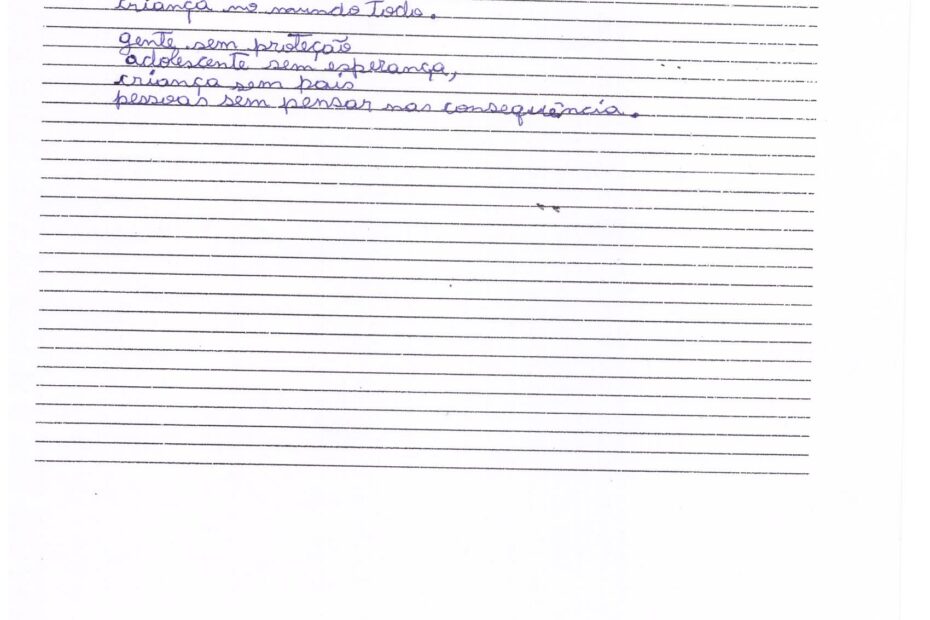 criança no mundo todo.
gente sem proteção
adolescente sem esperança,
criança sem pais
pessoas sem pensar nas consequência.